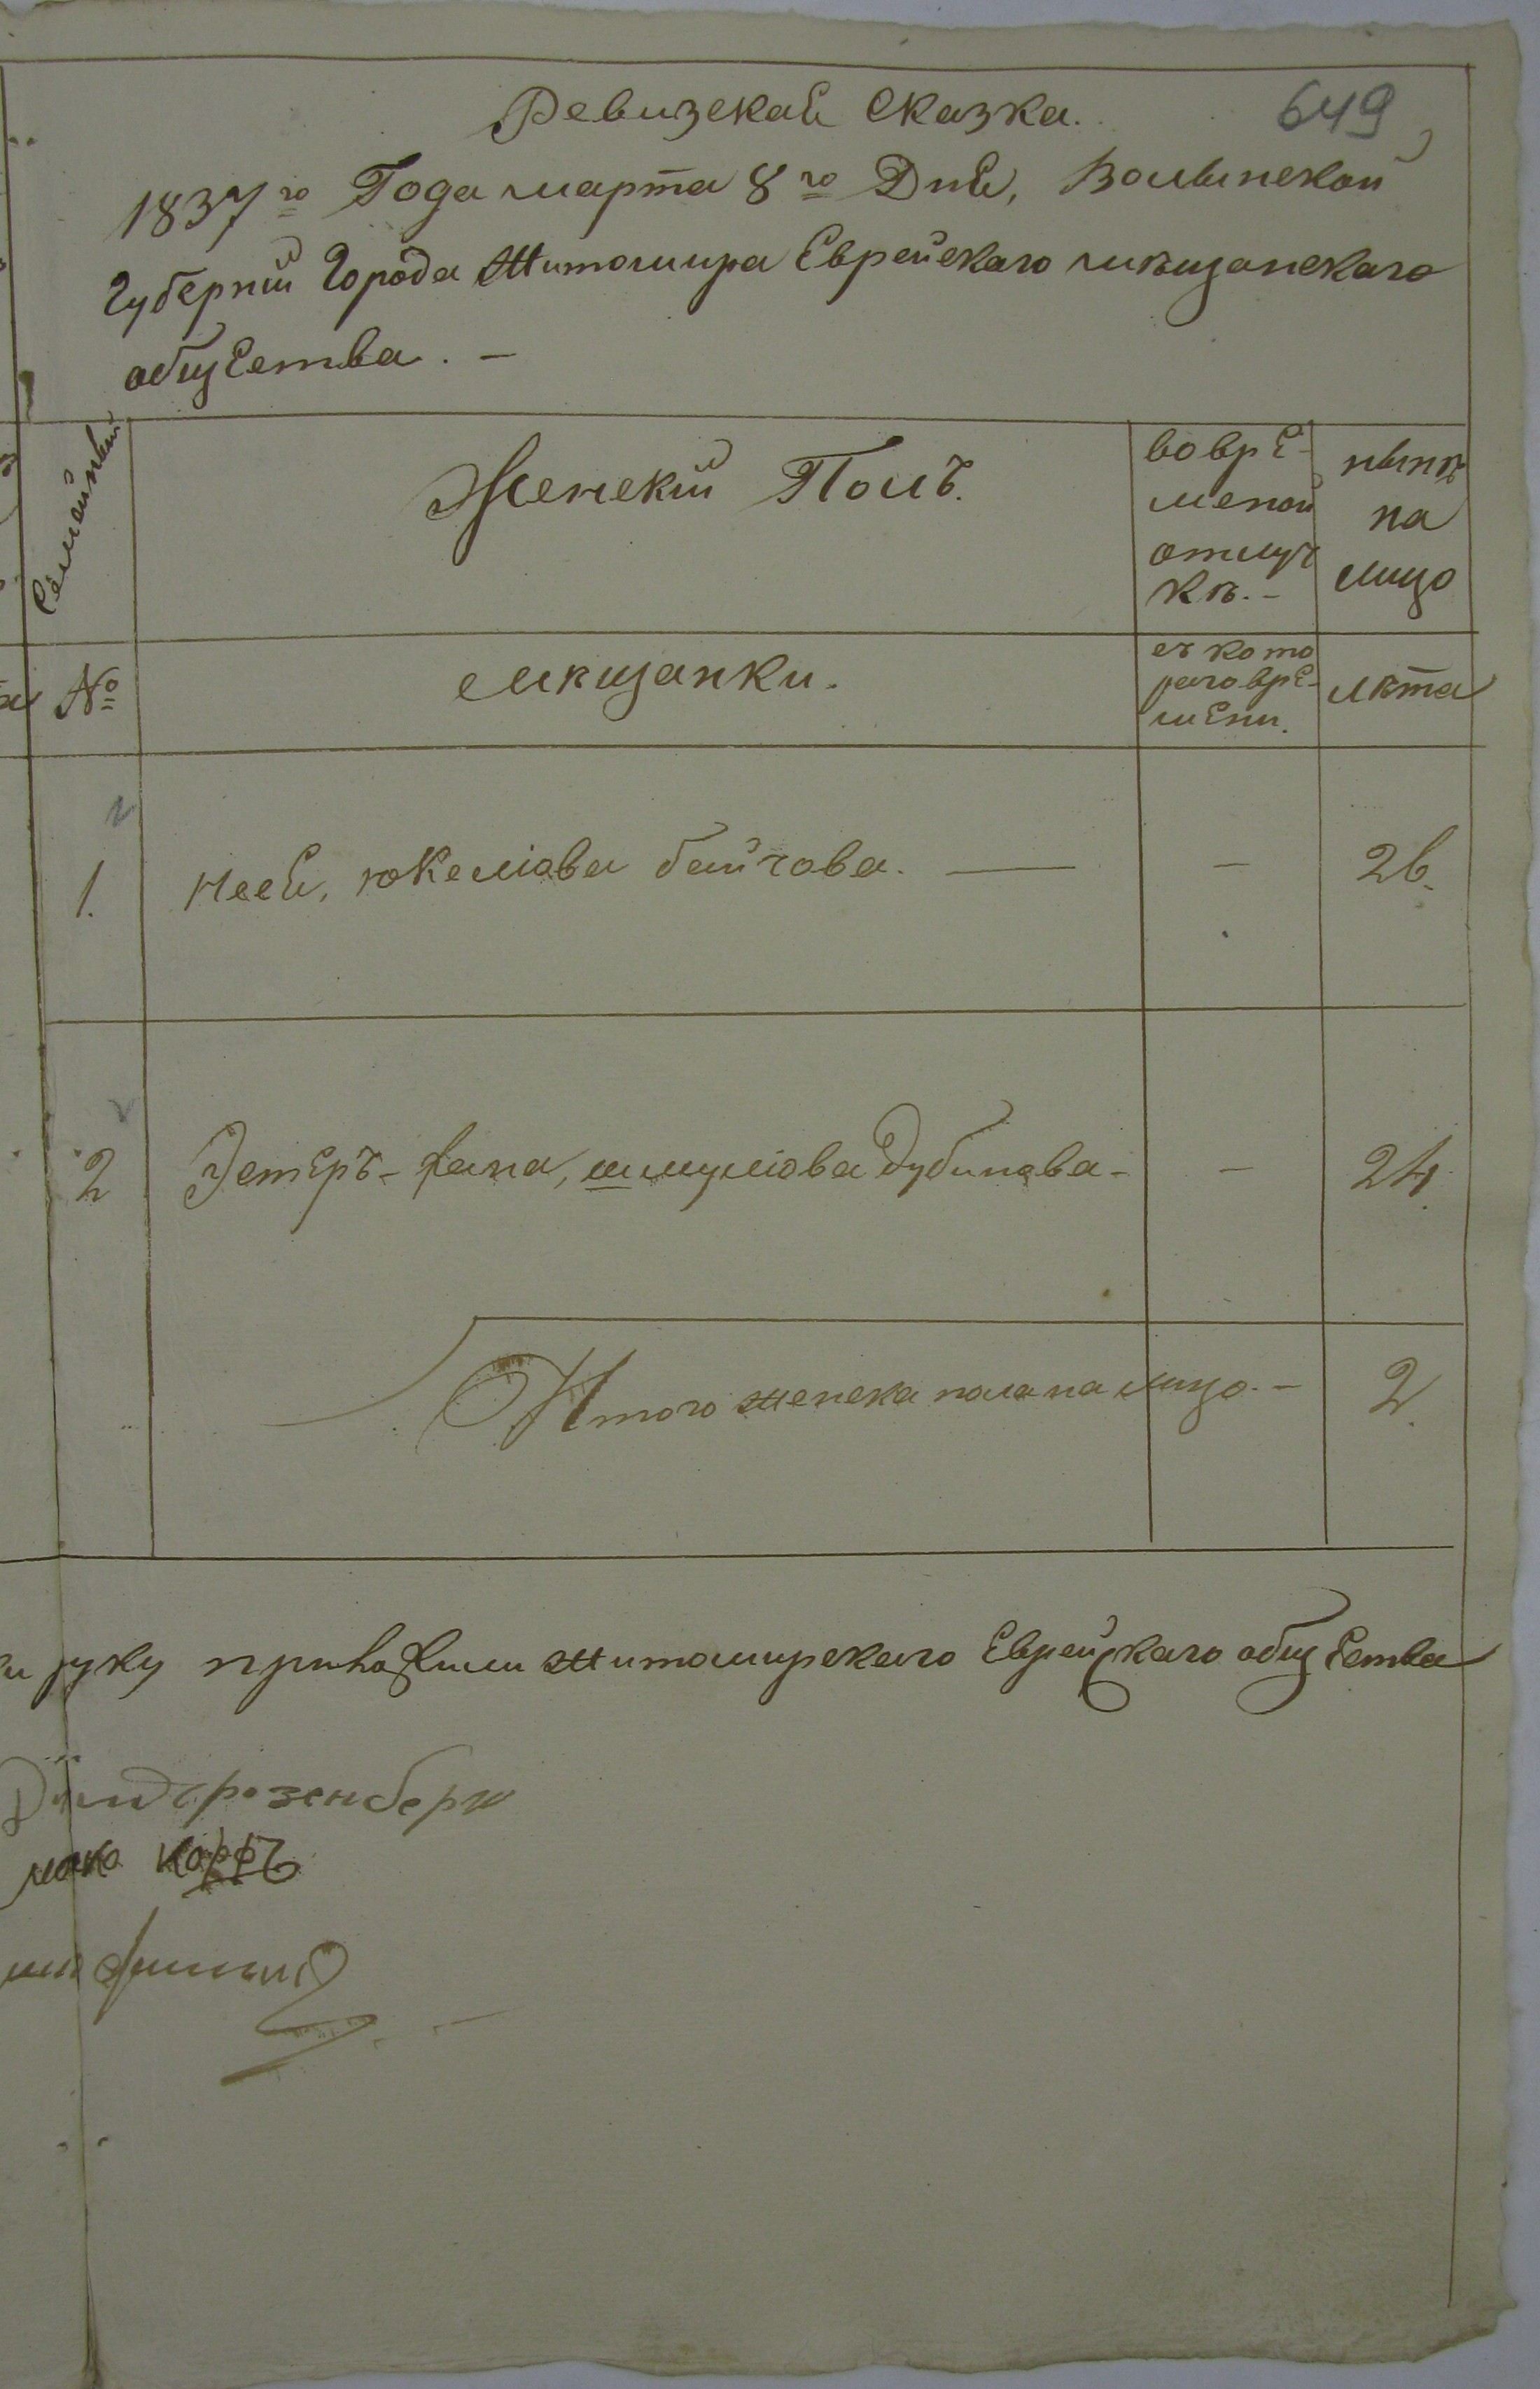 649
Ревизская Сказка.
1837го Года марта 8го Дня, Волынской
Губерніи Города Житомира Еврейскаго мѣщанскаго
общества. —
Семейный
Женскій Полъ.
во вре-
меной
отлуч
кѣ. —
нынѣ
на
лицо
№
мѣщанки.
съ кото
раго вре-
мени.
лѣта
1. Несся, Юкеліова байчова. — — 26.
2 Эстеръ-хана, шмуліова Дубинова - — 24.
Итого женска пола на лицо. — 2.
руку приложили Житомирскаго Еврейскаго общества
розенберг
Корфъ